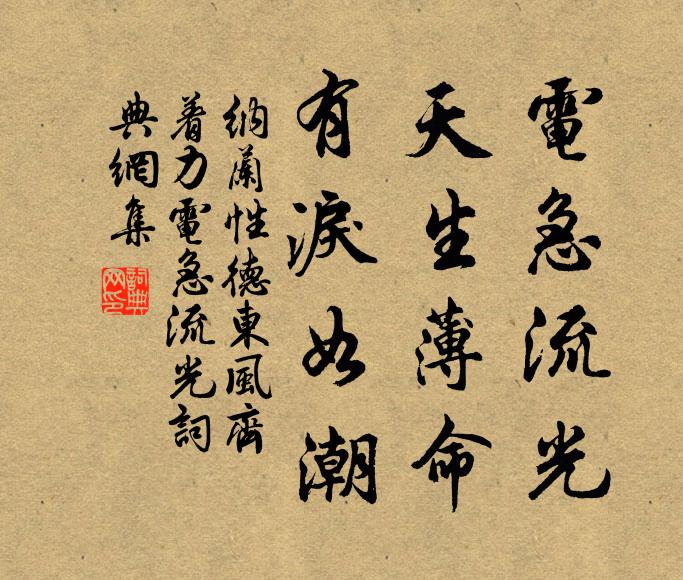 電急流光
天生薄命
有淚如潮
納蘭性德東風齊
着力電急流光詞
典網集
詞典
网印